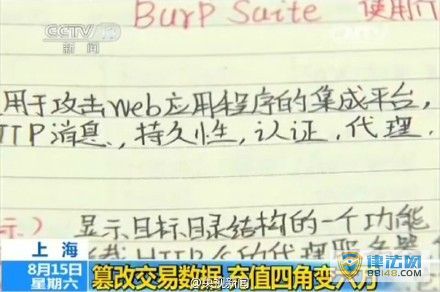 CCTV 13
新闻
Burp Suite 使用
用于攻击web应用程序的集成平台,
TTP消息,持久性,认证,代理.
示) 显示目标目录结构的一个功能
上海
8月15日
星期六
篡改交易数据 充值四角变六万
@央视新闻
律法网